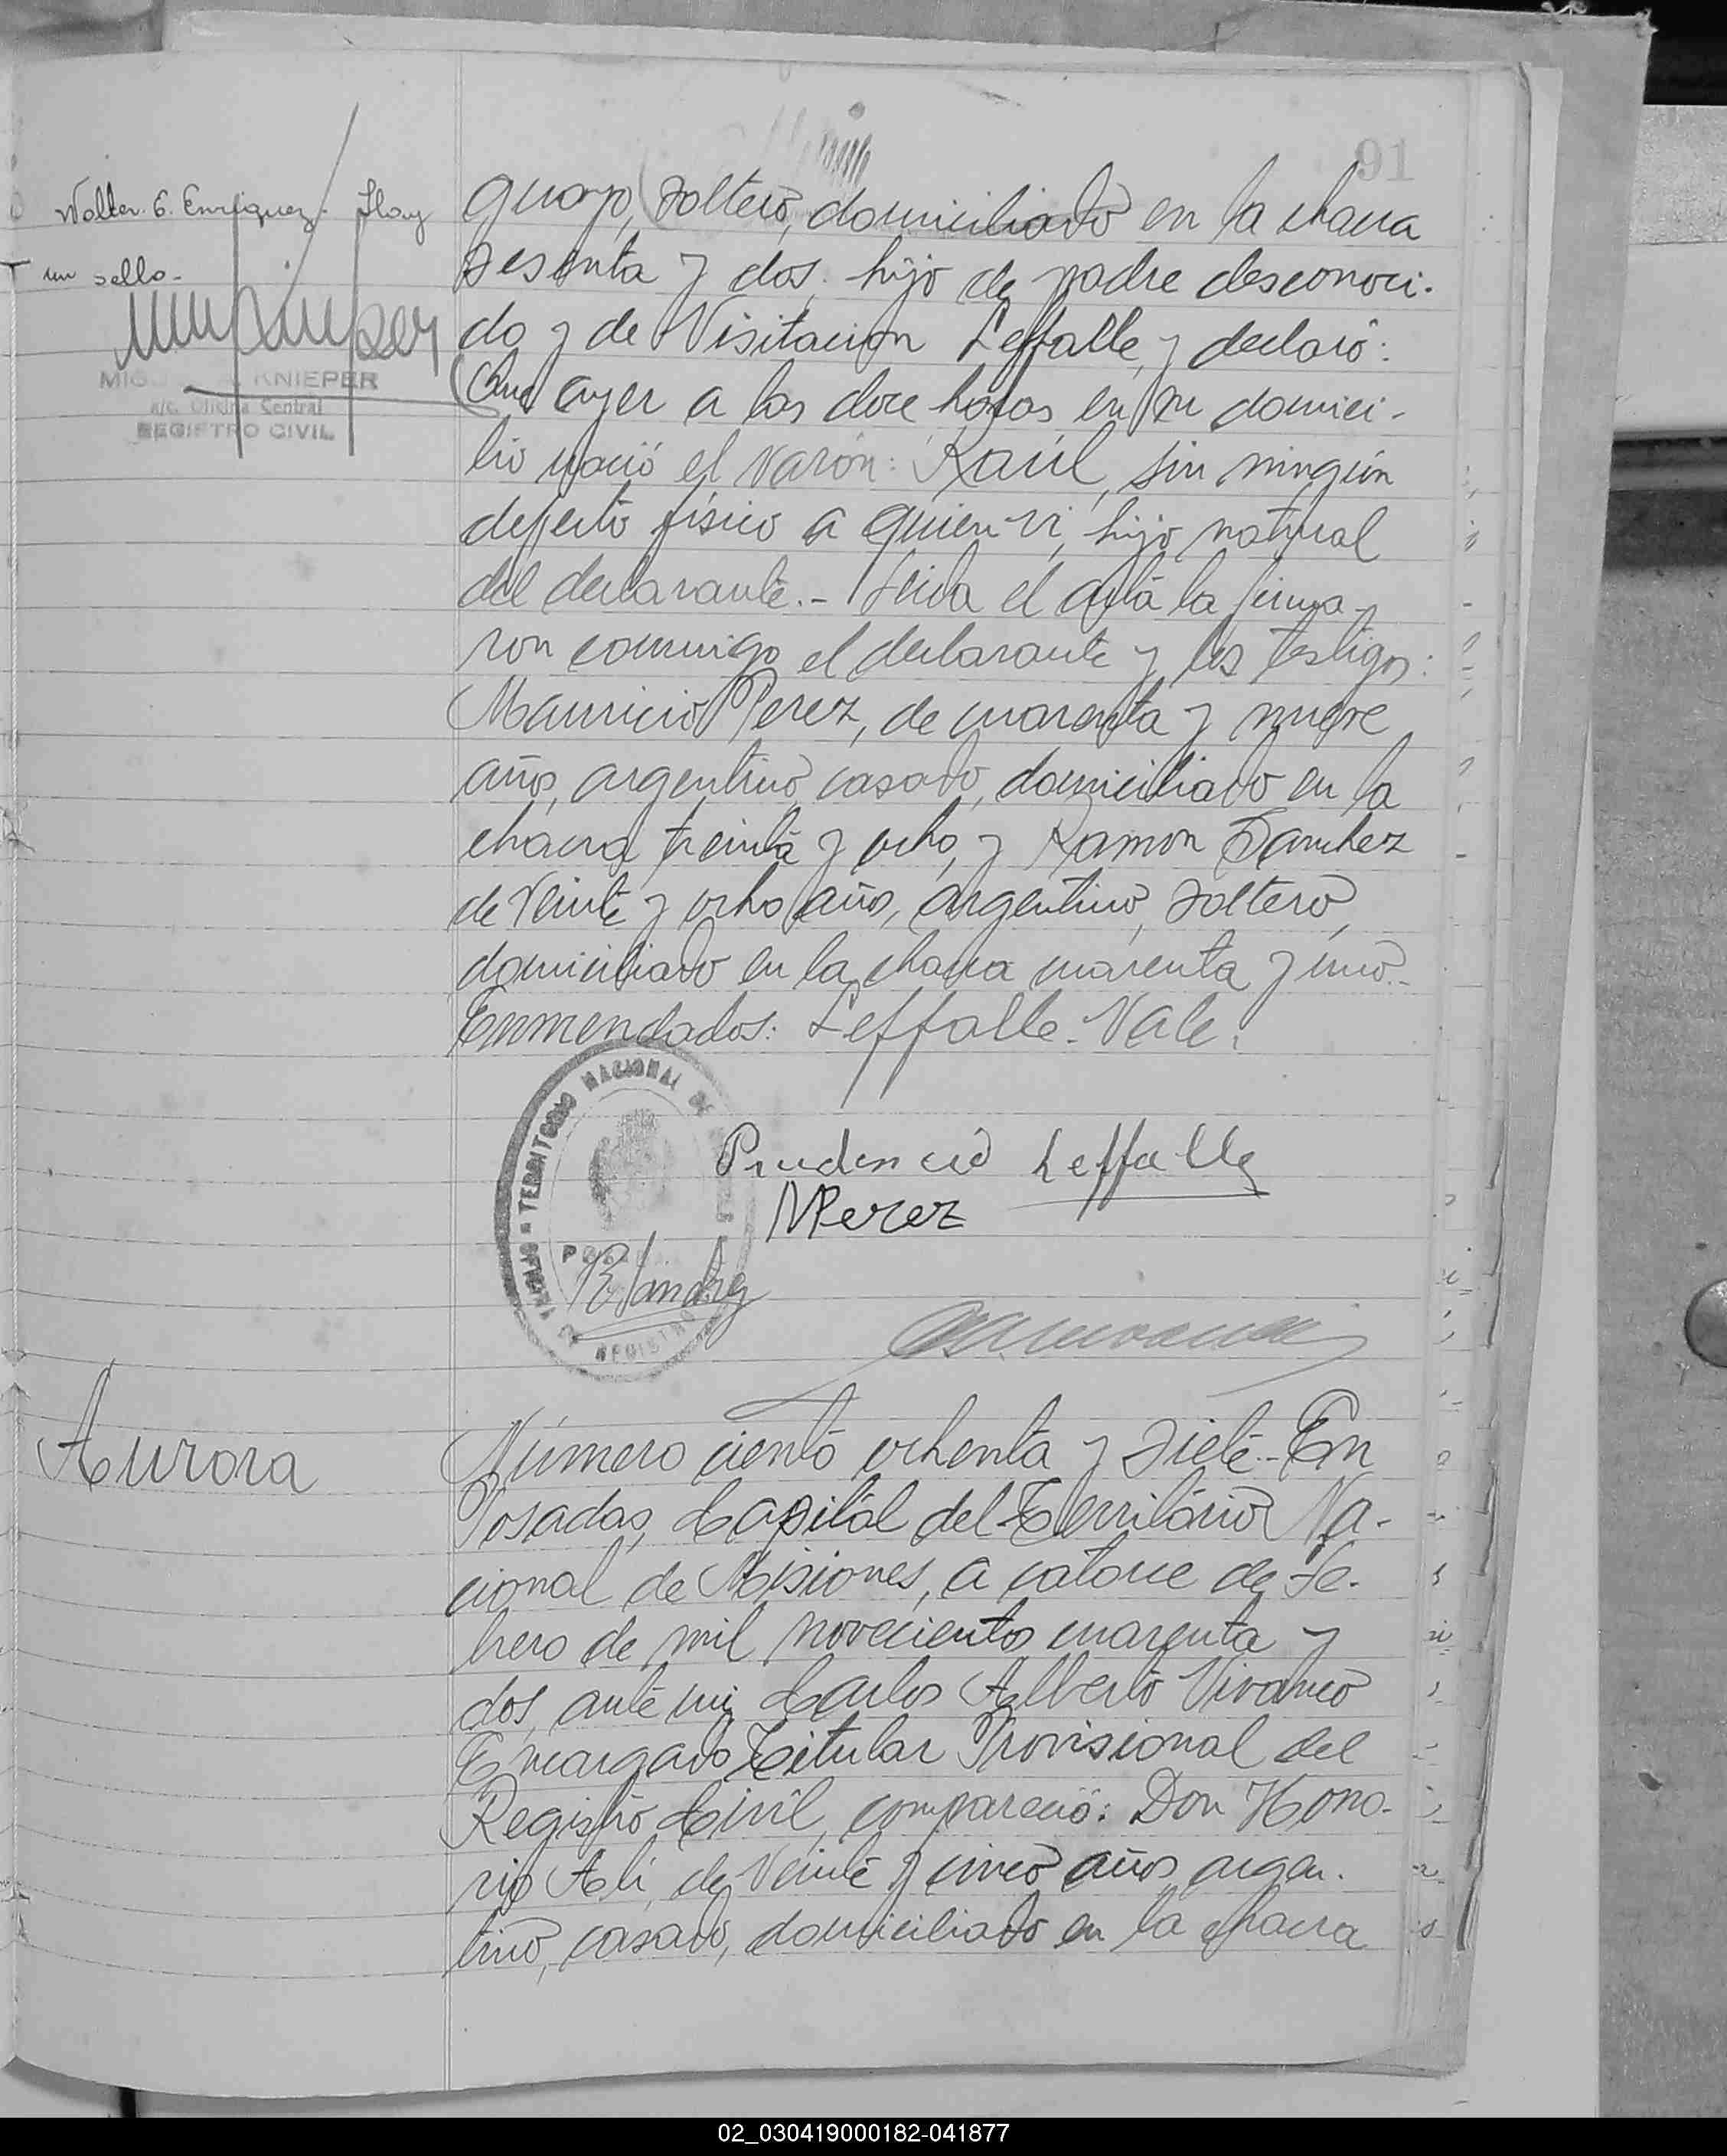 91
Walter E. Enriquez. Hay
un sello.-
KNIEPER
a/c. Oficina Central
REGISTRO CIVIL
guayo, soltero, domiciliado en la chacra
sesenta y dos, hijo de padre desconoci-
do y de Visitacion Leffalle, y declaró:
Que ayer a las doce horas en su domici-
lio nació el varón: Raúl, sin ningún
defecto físico a quien vi, hijo natural
del declarante.- Leida el acta la firma-
ron conmigo el declarante y los testigos:
Mauricio Perez, de cuarenta y nueve
años, argentino, casado, domiciliado en la
chacra treinta y ocho, y Ramon Sanchez
de veinte y ocho años, argentino, soltero,
domiciliado en la chacra cuarenta y uno.-
Enmendados: Leffalle. Vale.
TERRITORIO NACIONAL DE
REGISTRO
Prudencio Leffalle
MPerez
Aurora
Número ciento ochenta y siete.- En
Posadas, Capital del Territorio Na-
cional de Misiones, a catorce de Fe-
brero de mil novecientos cuarenta y
dos, ante mi Carlos Alberto Vivanco
Encargado Titular Provisional del
Registro Civil, compareció: Don Hono-
rio Alí, de veinte y cinco años, argen-
tino, casado, domiciliado en la chacra
02_030419000182-041877